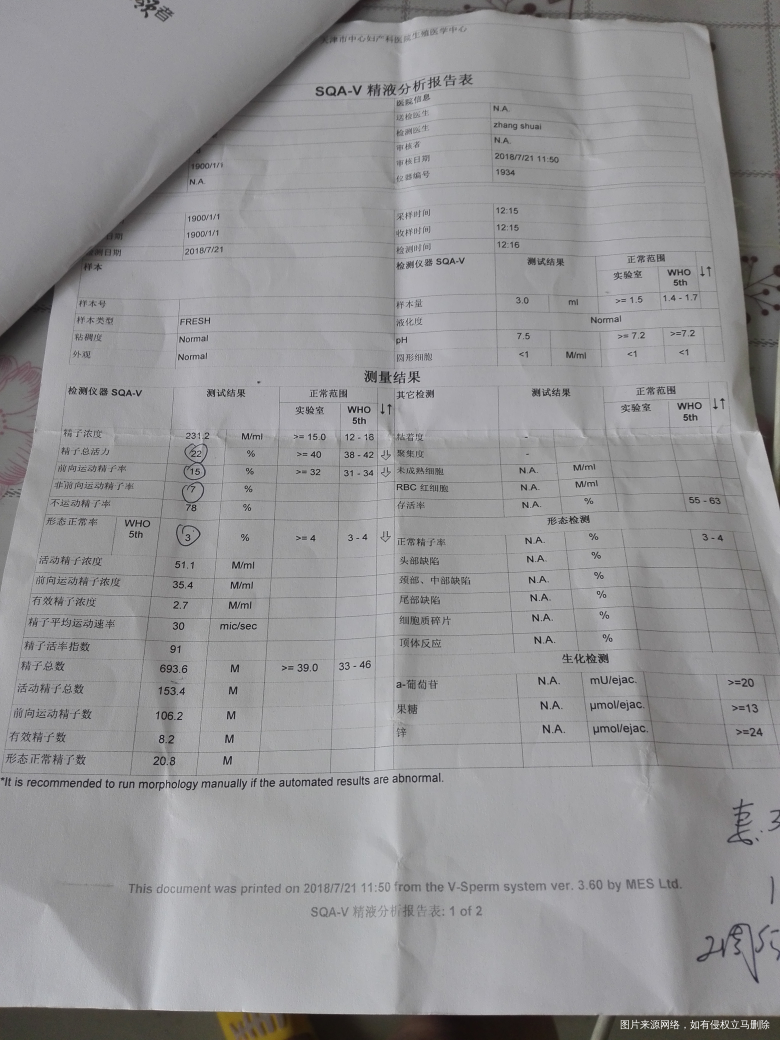 天津市中心妇产科医院生殖医学中心
SQA-V 精液分析报告表
医院信息
送检医生 N.A.
检测医生 zhang shuai
审核者 N.A.
1900/1/1 审核日期 2018/7/21 11:50
N.A. 仪器编号 1934
1900/1/1 采样时间 12:15
日期 1900/1/1 收样时间 12:15
检测日期 2018/7/21 检测时间 12:16
样本 检测仪器 SQA-V 测试结果 正常范围 ↓↑
实验室 WHO 5th
样本号 样本量 3.0 ml >= 1.5 1.4 - 1.7
样本类型 FRESH 液化度 Normal
粘稠度 Normal pH 7.5 >= 7.2 >=7.2
外观 Normal 圆形细胞 <1 M/ml <1 <1
测量结果
检测仪器 SQA-V 测试结果 正常范围 ↓↑ 其它检测 测试结果 正常范围 ↓↑
实验室 WHO 5th 实验室 WHO 5th
精子浓度 231.2 M/ml >= 15.0 12 - 18 粘着度 -
精子总活力 22 % >= 40 38 - 42 ⇩ 聚集度 -
前向运动精子率 15 % >= 32 31 - 34 ⇩ 未成熟细胞 N.A. M/ml
非前向运动精子率 7 % RBC 红细胞 N.A. M/ml
不运动精子率 78 % 存活率 N.A. % 55 - 63
形态正常率 WHO 5th 3 % >= 4 3 - 4 ⇩ 形态检测
正常精子率 N.A. % 3 - 4
活动精子浓度 51.1 M/ml 头部缺陷 N.A. %
前向运动精子浓度 35.4 M/ml 颈部、中部缺陷 N.A. %
有效精子浓度 2.7 M/ml 尾部缺陷 N.A. %
精子平均运动速率 30 mic/sec 细胞质碎片 N.A. %
精子活率指数 91 顶体反应 N.A. %
精子总数 693.6 M >= 39.0 33 - 46 生化检测
活动精子总数 153.4 M a-葡萄苷 N.A. mU/ejac. >=20
前向运动精子数 106.2 M 果糖 N.A. µmol/ejac. >=13
有效精子数 8.2 M 锌 N.A. µmol/ejac. >=24
形态正常精子数 20.8 M
*It is recommended to run morphology manually if the automated results are abnormal.
This document was printed on 2018/7/21 11:50 from the V-Sperm system ver. 3.60 by MES Ltd.
SQA-V 精液分析报告表: 1 of 2
图片来源网络，如有侵权立马删除